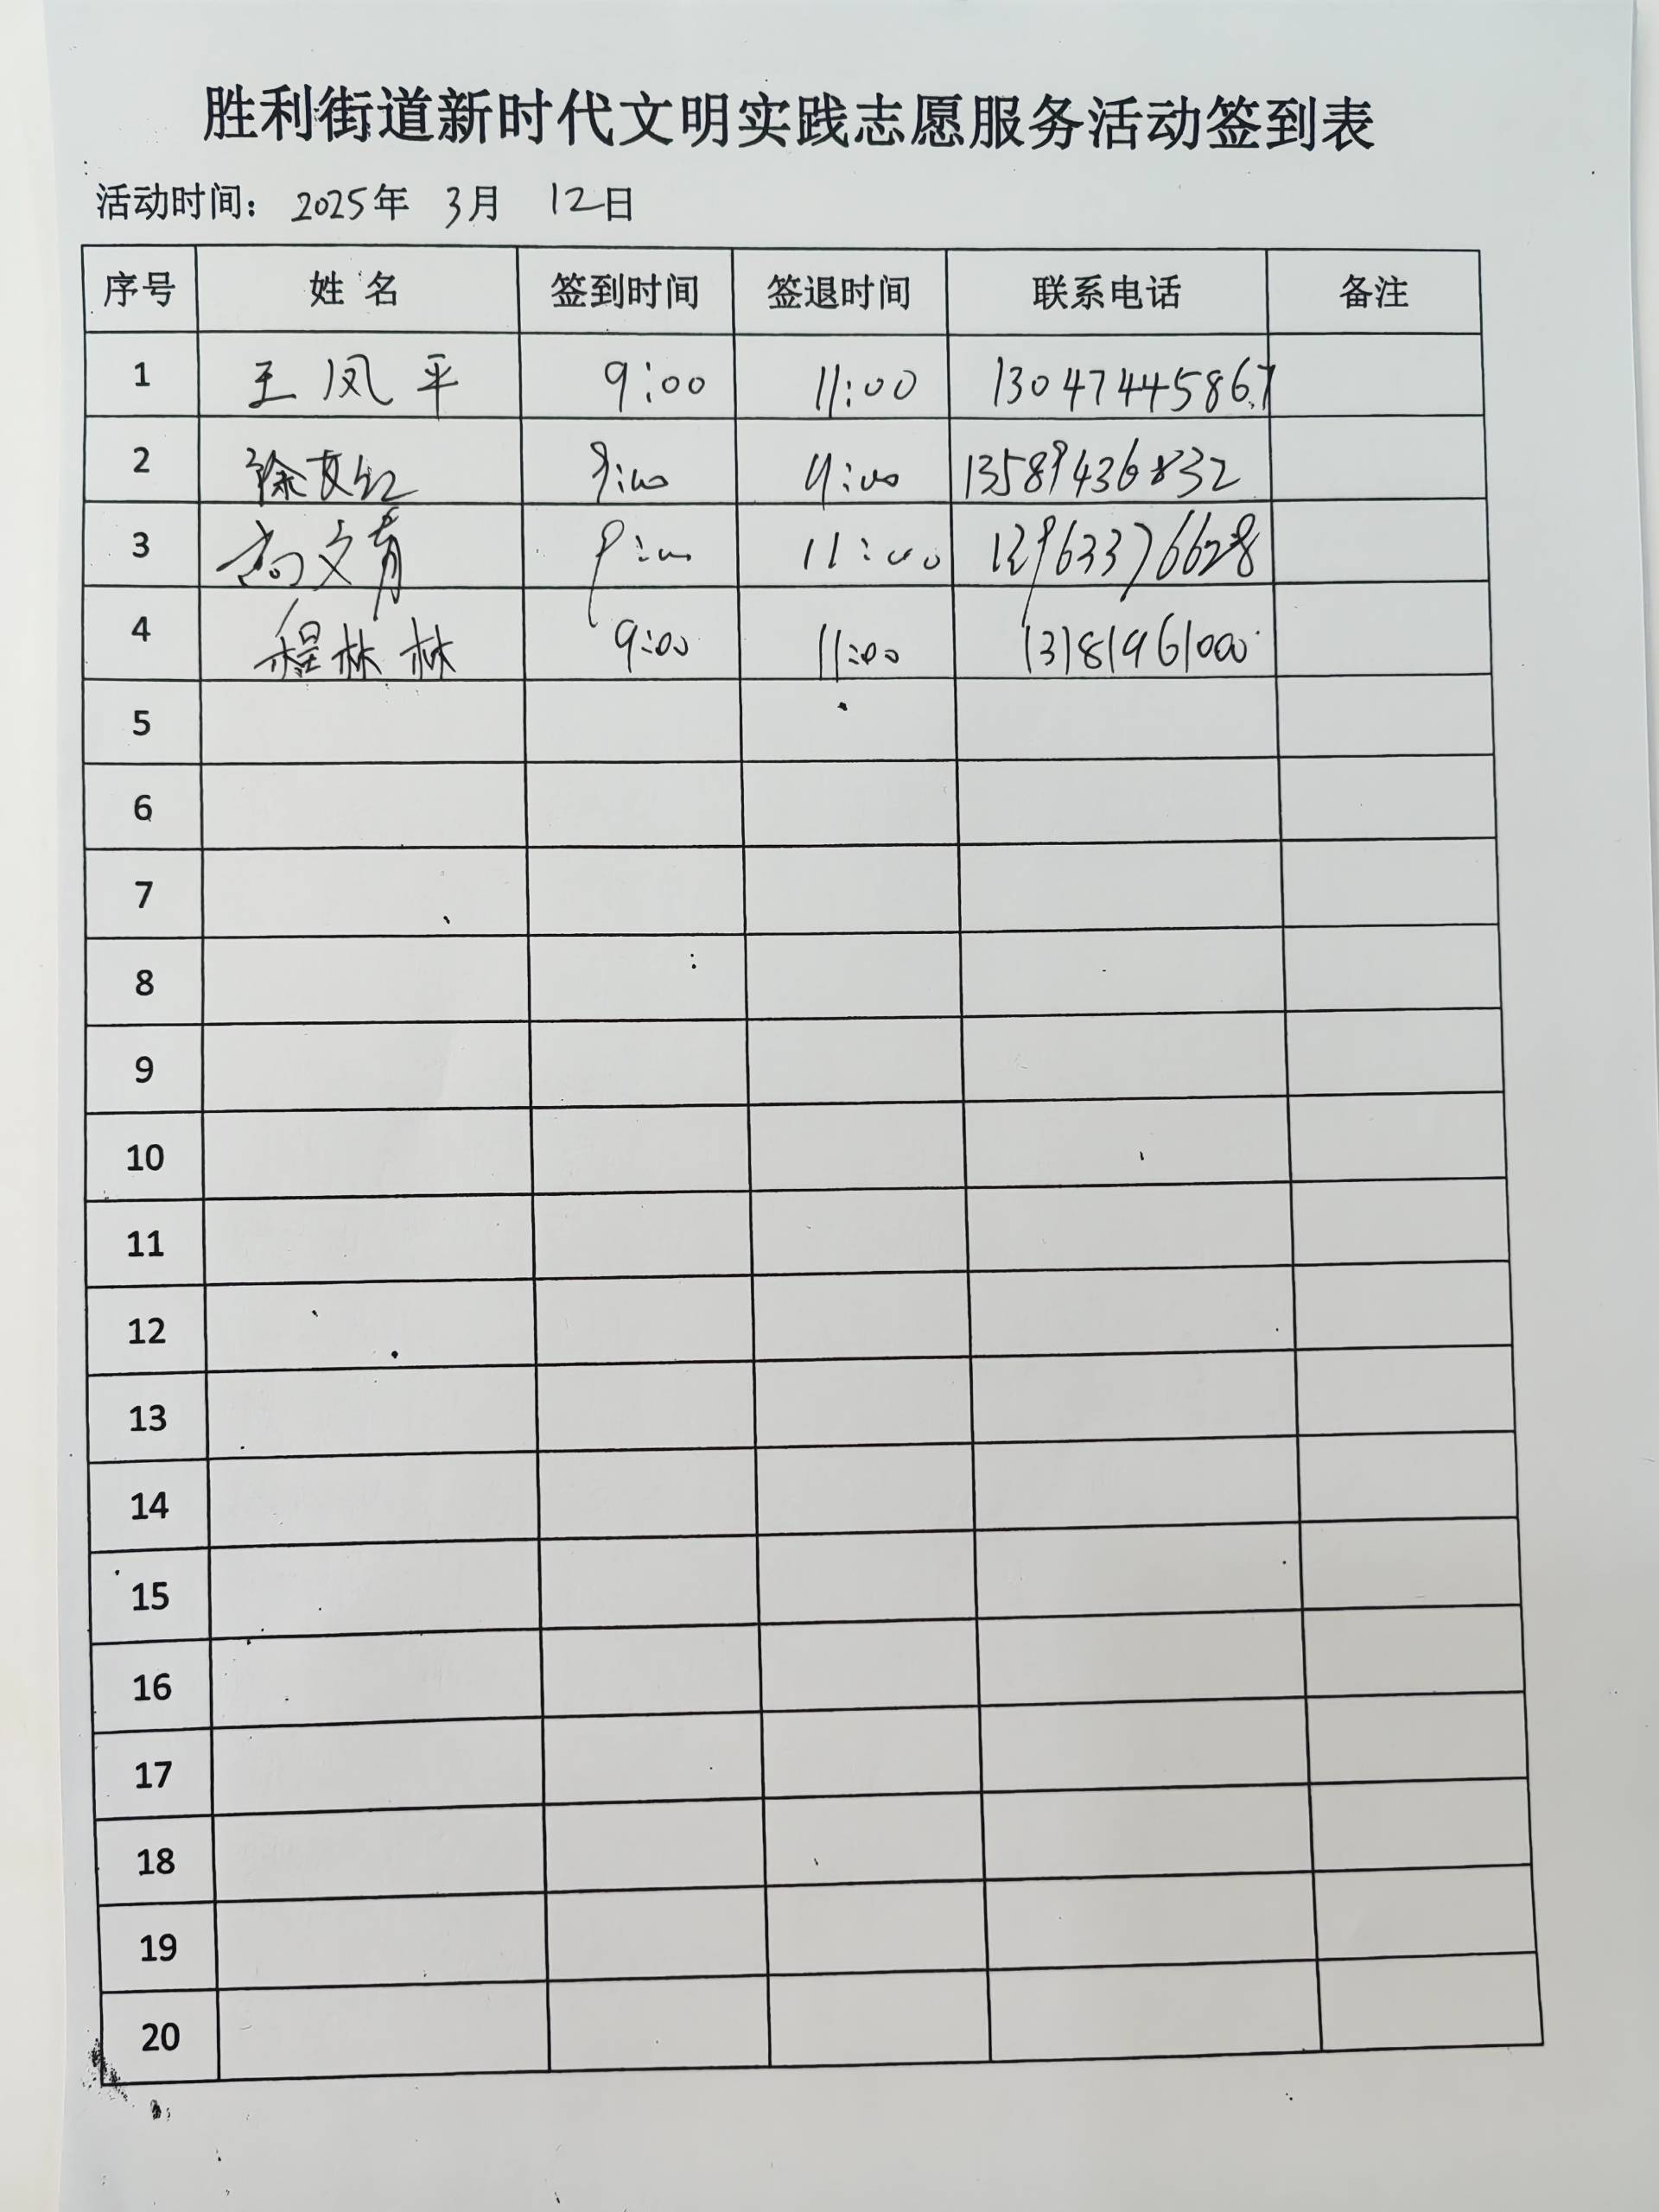 胜利街道新时代文明实践志愿服务活动签到表
活动时间： 2025年 3月 12日
序号 姓 名 签到时间 签退时间 联系电话 备注
1 王凤平 9:00 11:00 13047445867
2 徐 9:00 11:00 13589436832
3 高文青 9:00 11:00
4 程林林 9:00 11:00 13181961000
5
6
7
8
9
10
11
12
13
14
15
16
17
18
19
20